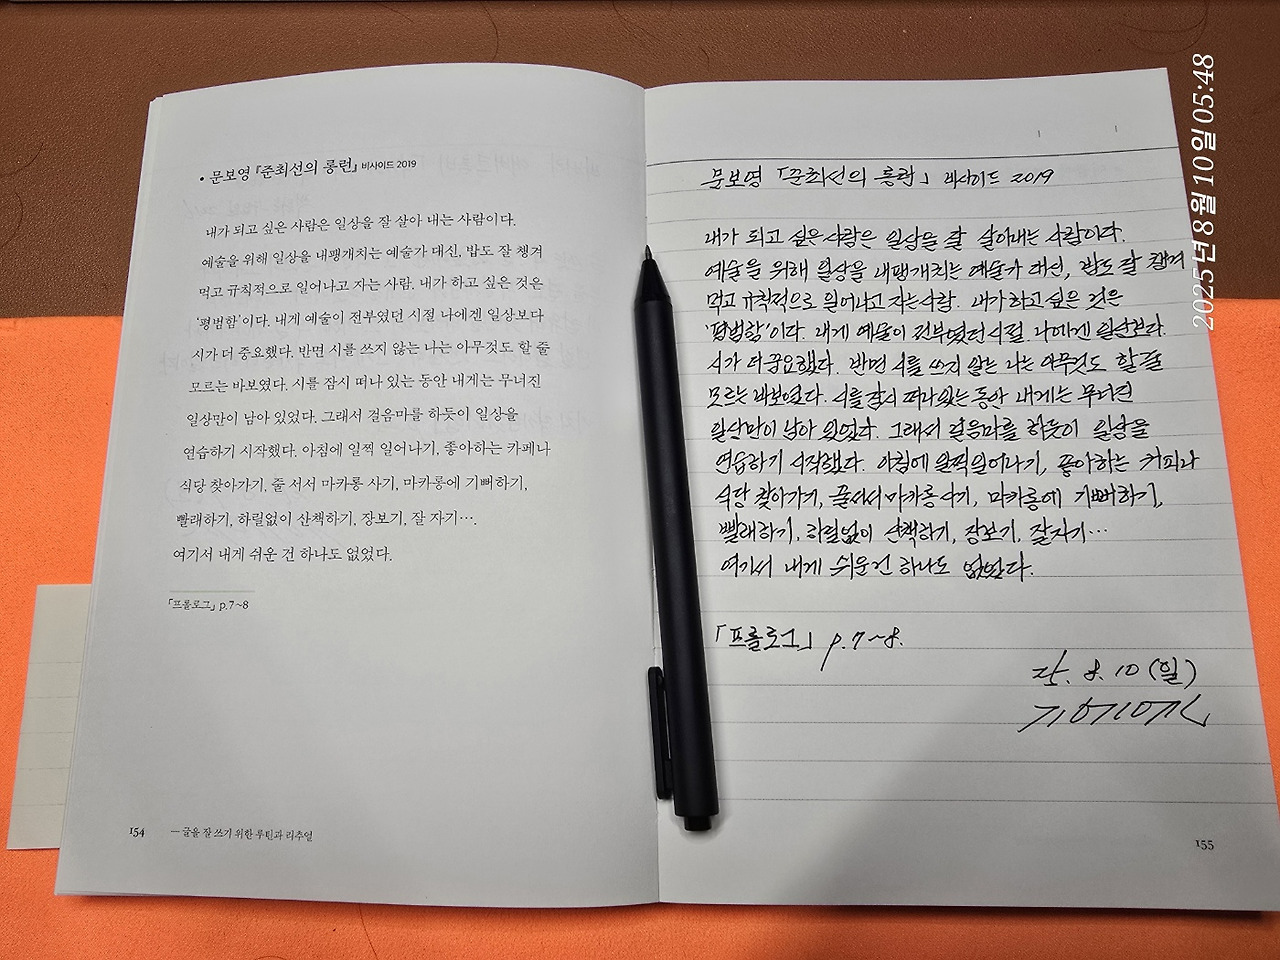 • 문보영 『준최선의 롱런』 비사이드 2019
내가 되고 싶은 사람은 일상을 잘 살아 내는 사람이다.
예술을 위해 일상을 내팽개치는 예술가 대신, 밥도 잘 챙겨
먹고 규칙적으로 일어나고 자는 사람. 내가 하고 싶은 것은
‘평범함’이다. 내게 예술이 전부였던 시절 나에겐 일상보다
시가 더 중요했다. 반면 시를 쓰지 않는 나는 아무것도 할 줄
모르는 바보였다. 시를 잠시 떠나 있는 동안 내게는 무너진
일상만이 남아 있었다. 그래서 걸음마를 하듯이 일상을
연습하기 시작했다. 아침에 일찍 일어나기, 좋아하는 카페나
식당 찾아가기, 줄 서서 마카롱 사기, 마카롱에 기뻐하기,
빨래하기, 하릴없이 산책하기, 장보기, 잘 자기….
여기서 내게 쉬운 건 하나도 없었다.
「프롤로그」 p.7~8
154 — 글을 잘 쓰기 위한 루틴과 리추얼
문보영 「준최선의 롱런」 비사이드 2019
내가 되고 싶은 사람은 일상을 잘 살아내는 사람이다.
예술을 위해 일상을 내팽개치는 예술가 대신, 밥도 잘 챙겨
먹고 규칙적으로 일어나고 자는 사람. 내가 하고 싶은 것은
'평범함'이다. 내게 예술이 전부였던 시절 나에겐 일상보다
시가 더 중요했다. 반면 시를 쓰지 않는 나는 아무것도 할 줄
모르는 바보였다. 시를 잠시 떠나 있는 동안 내게는 무너진
일상만이 남아 있었다. 그래서 걸음마를 하듯이 일상을
연습하기 시작했다. 아침에 일찍 일어나기, 좋아하는 커피나
식당 찾아가기, 줄서서 마카롱 사기, 마카롱에 기뻐하기,
빨래하기, 하릴없이 산책하기, 장보기, 잘 자기…
여기서 내게 쉬운 건 하나도 없었다.
「프롤로그」 p.7~8.
25. 8. 10 (일)
155
2025년 8월 10일 05:48